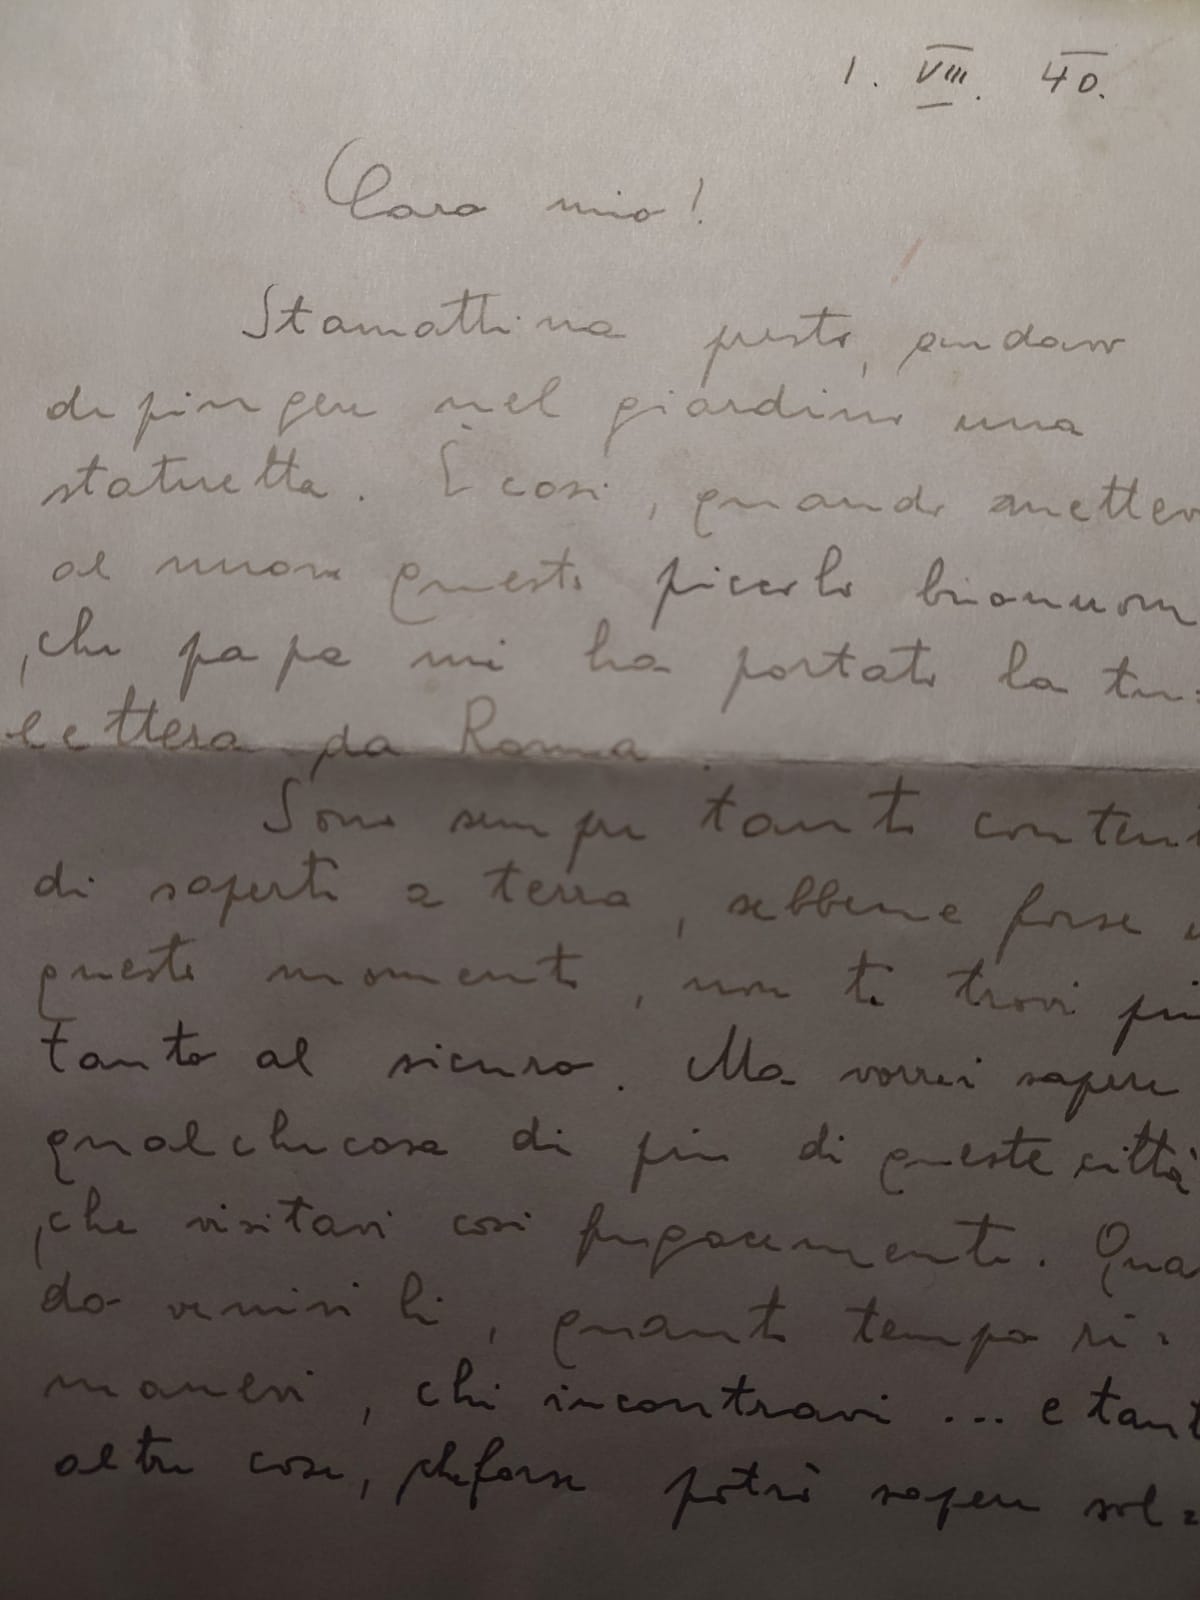 1. VIII. 40.
Caro mio!
Stamattina presto, andavo
dipingere nel giardino una
statuetta. È così, quando mettevo
al muoro questo piccolo
, che papa mi ha portato la tu=
lettera da Roma.
Sono sempre tanto content
di saperti a terra, sebbene forse i
questo momento, non ti trovi più
tanto al sicuro. Ma vorrei sapere
qualchecosa di più di queste città
, che visitavi così fugacemente. Qua
do venivi lì, quanto tempo ri=
manevi, chi incontravi ... e tant
altre cose, che forse potrò sapere sol=